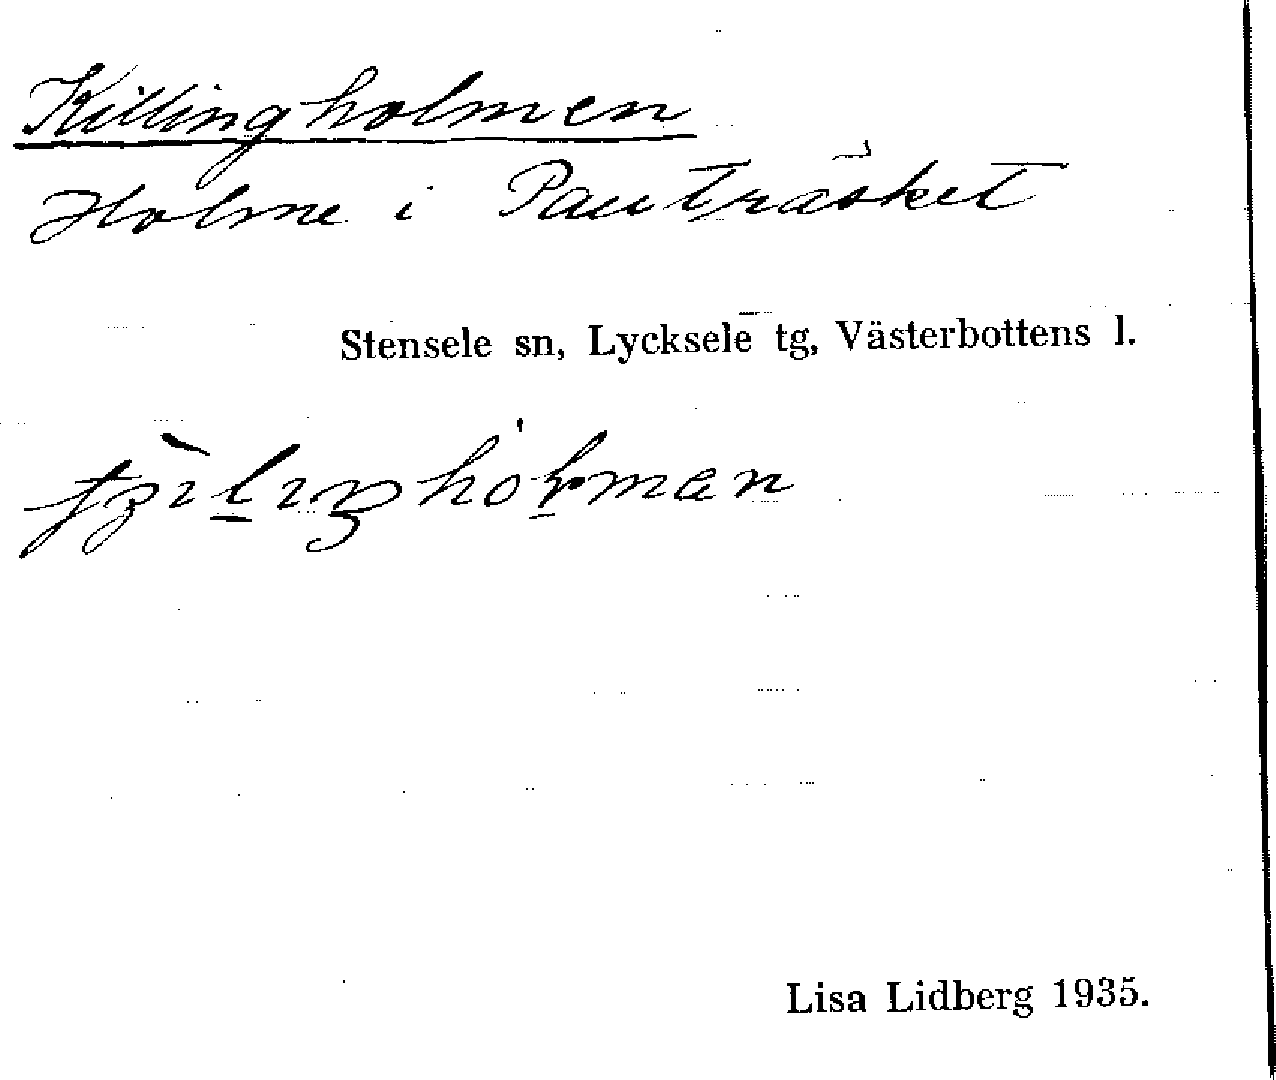 Killingholmen
Holme i Pauträsket
Stensele sn, Lycksele tg, Västerbottens l.
Lisa Lidberg 1935.